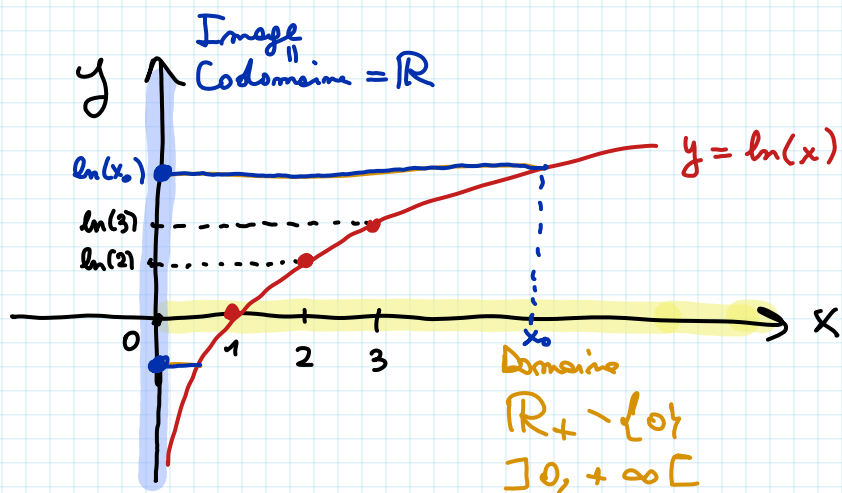 Image
=
Codomaine = ℝ
y
y = ln(x)
ln(x₀)
ln(3)
ln(2)
0
1
2
3
x₀
x
Domaine
ℝ₊ \ {0}
]0, +∞[